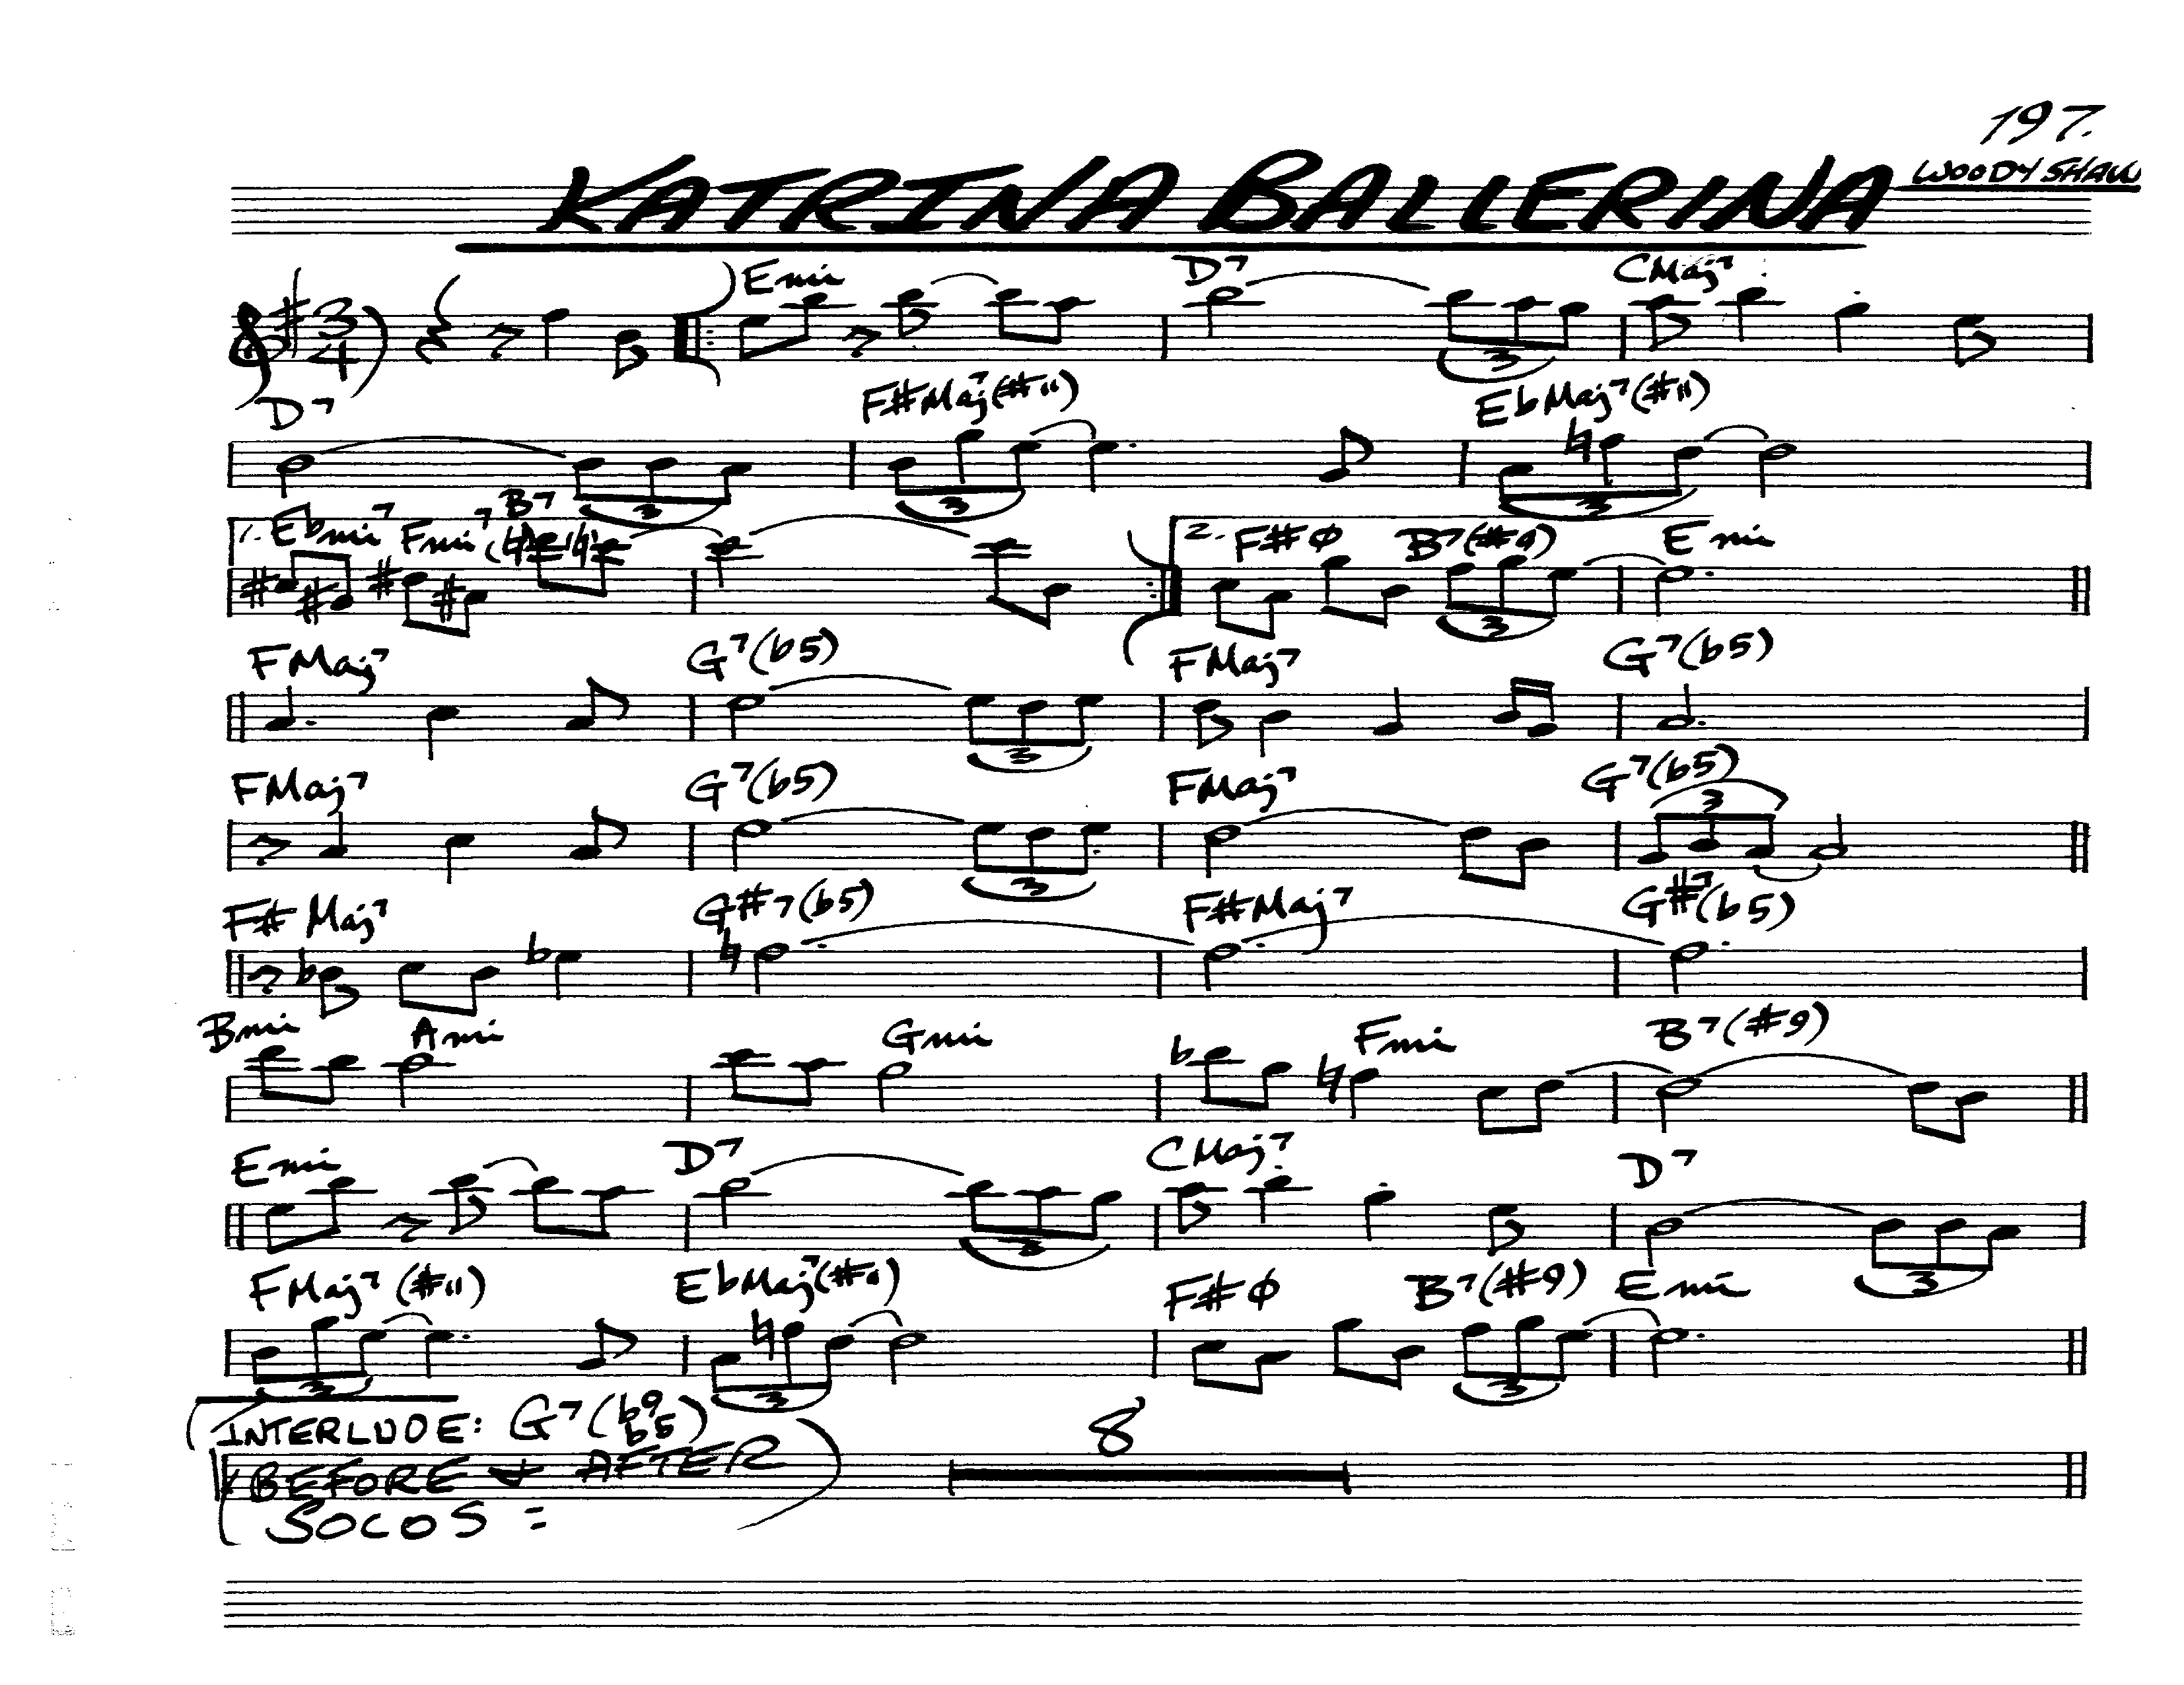 197.
KATRINA BALLERINA WOODY SHAW
3/4 Emi D7 CMaj7
3
D7 F#Maj7(#11) EbMaj7(#11)
3 3 3
1. Ebmi7 Fmi7 B7 2. F#ø B7(#9) Emi
3
FMaj7 G7(b5) FMaj7 G7(b5)
3
FMaj7 G7(b5) FMaj7 G7(b5)
3 3
F# Maj7 G#7(b5) F#Maj7 G#7(b5)
Bmi Ami Gmi Fmi B7(#9)
Emi D7 CMaj7 D7
3 3
FMaj7 (#11) EbMaj7(#11) F#ø B7(#9) Emi
3 3 3
INTERLUDE: G7(b9 b5) 8
BEFORE & AFTER
SOLOS =